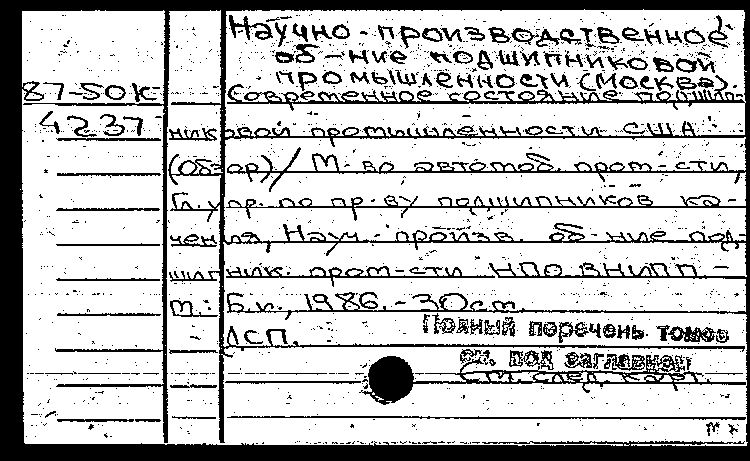 Научно-производственное
об-ние подшипниковой
промышленности (Москва).
87-50к Современное состояние подшип-
4237 никовой промышленности США
(Обзор) / М-во автомоб. пром-сти,
Гл. упр. по пр-ву подшипников ка-
чения, Науч.-произв. об-ние под-
шипник. пром-сти НПО ВНИПП. -
М.: Б.и., 1986. - 30 см.
ДСП.
Полный перечень томов
см. под заглавием
См. след. карт.